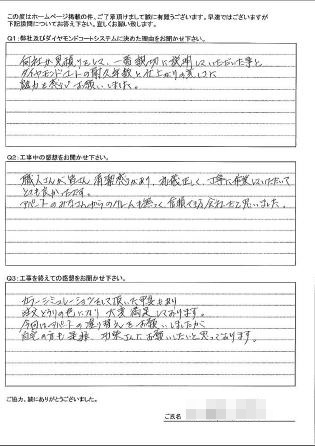 この度はホームページ掲載の件、ご了承頂けまして誠に有難うございます。早速ではございますが
下記設問についてお答え下さい。宜しくお願い致します。
Q1：弊社及びダイヤモンドコートシステムに決めた理由をお聞かせ下さい。
何社か見積りをして、一番親切に説明していただいた事と
ダイヤモンドコートの耐久年数と仕上がりの美しさに
魅力を感じお願いしました。
Q2：工事中の感想をお聞かせ下さい。
職人さんが皆さん清潔感があり、礼儀正しく、丁寧に作業していただいて
とても良かったです。
アパートのみなさんからのクレームも無って、信頼できる会社だと思いました。
Q3：工事を終えての感想をお聞かせ下さい。
カラーシミュレーションをして頂いた事もあり
ほぼ思いどうりの色になり大変満足しております。
今回はアパートの塗り替えをお願いしましたが
自宅の方も是非、御社にお願いしたいと思っております。
ご協力、誠にありがとうございました。
ご氏名